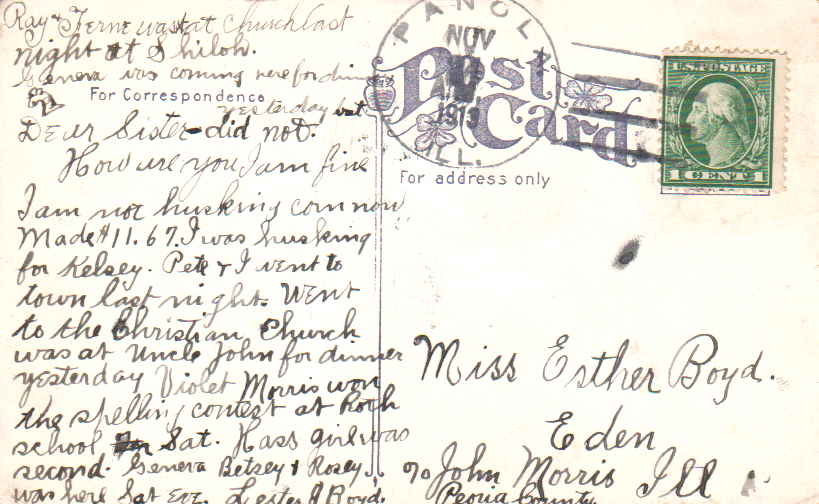 Ray & Ferne was at Church last
night at Shiloh.
Geneva was coming here for dinner
yesterday but
For Correspondence
Dear Sister - did not.
How are you I am fine
I am not husking corn now
Made $11.67. I was husking
for Kelsey. Pete & I went to
town last night. Went
to the Christian Church
was at Uncle John for dinner
yesterday Violet Morris won
the spelling contest at Roth
school Sat. Hass girl was
second. Geneva Betsey & Rosey
was here Sat Eve. Lester A Boyd.
PANOLA
NOV
1913
ILL.
Post
Card
For address only
U.S. POSTAGE
1 CENT 1
Miss Esther Boyd.
Eden
c/o John Morris Ill
Peoria County